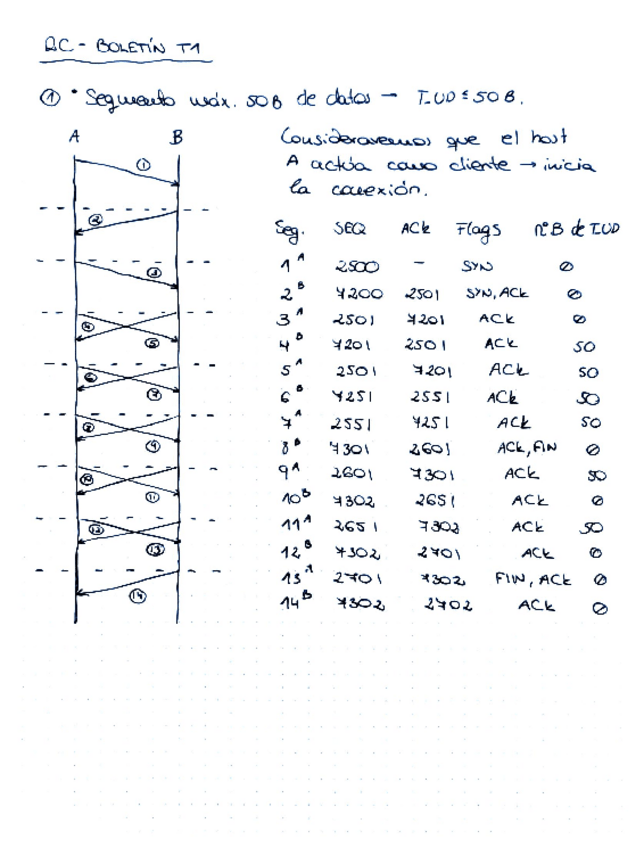 RC - BOLETÍN T1
① • Segmento máx. 50B de datos → T.UD ≤ 50B.
Consideraremos que el host
A actúa como cliente → inicia
la conexión.
A B
Seg. SEQ ACK Flags nºB de T.UD
1 A 2500 - SYN ∅
2 B 7200 2501 SYN, ACK ∅
3 A 2501 7201 ACK ∅
4 B 7201 2501 ACK 50
5 A 2501 7201 ACK 50
6 B 7251 2551 ACK 50
7 A 2551 7251 ACK 50
8 B 7301 2601 ACK, FIN ∅
9 A 2601 7301 ACK 50
10 B 7302 2651 ACK ∅
11 A 2651 7302 ACK 50
12 B 7302 2701 ACK ∅
13 A 2701 7302 FIN, ACK ∅
14 B 7302 2702 ACK ∅
①
②
③
④ ⑤
⑥ ⑦
⑧ ⑨
⑩ ⑪
⑫ ⑬
⑭